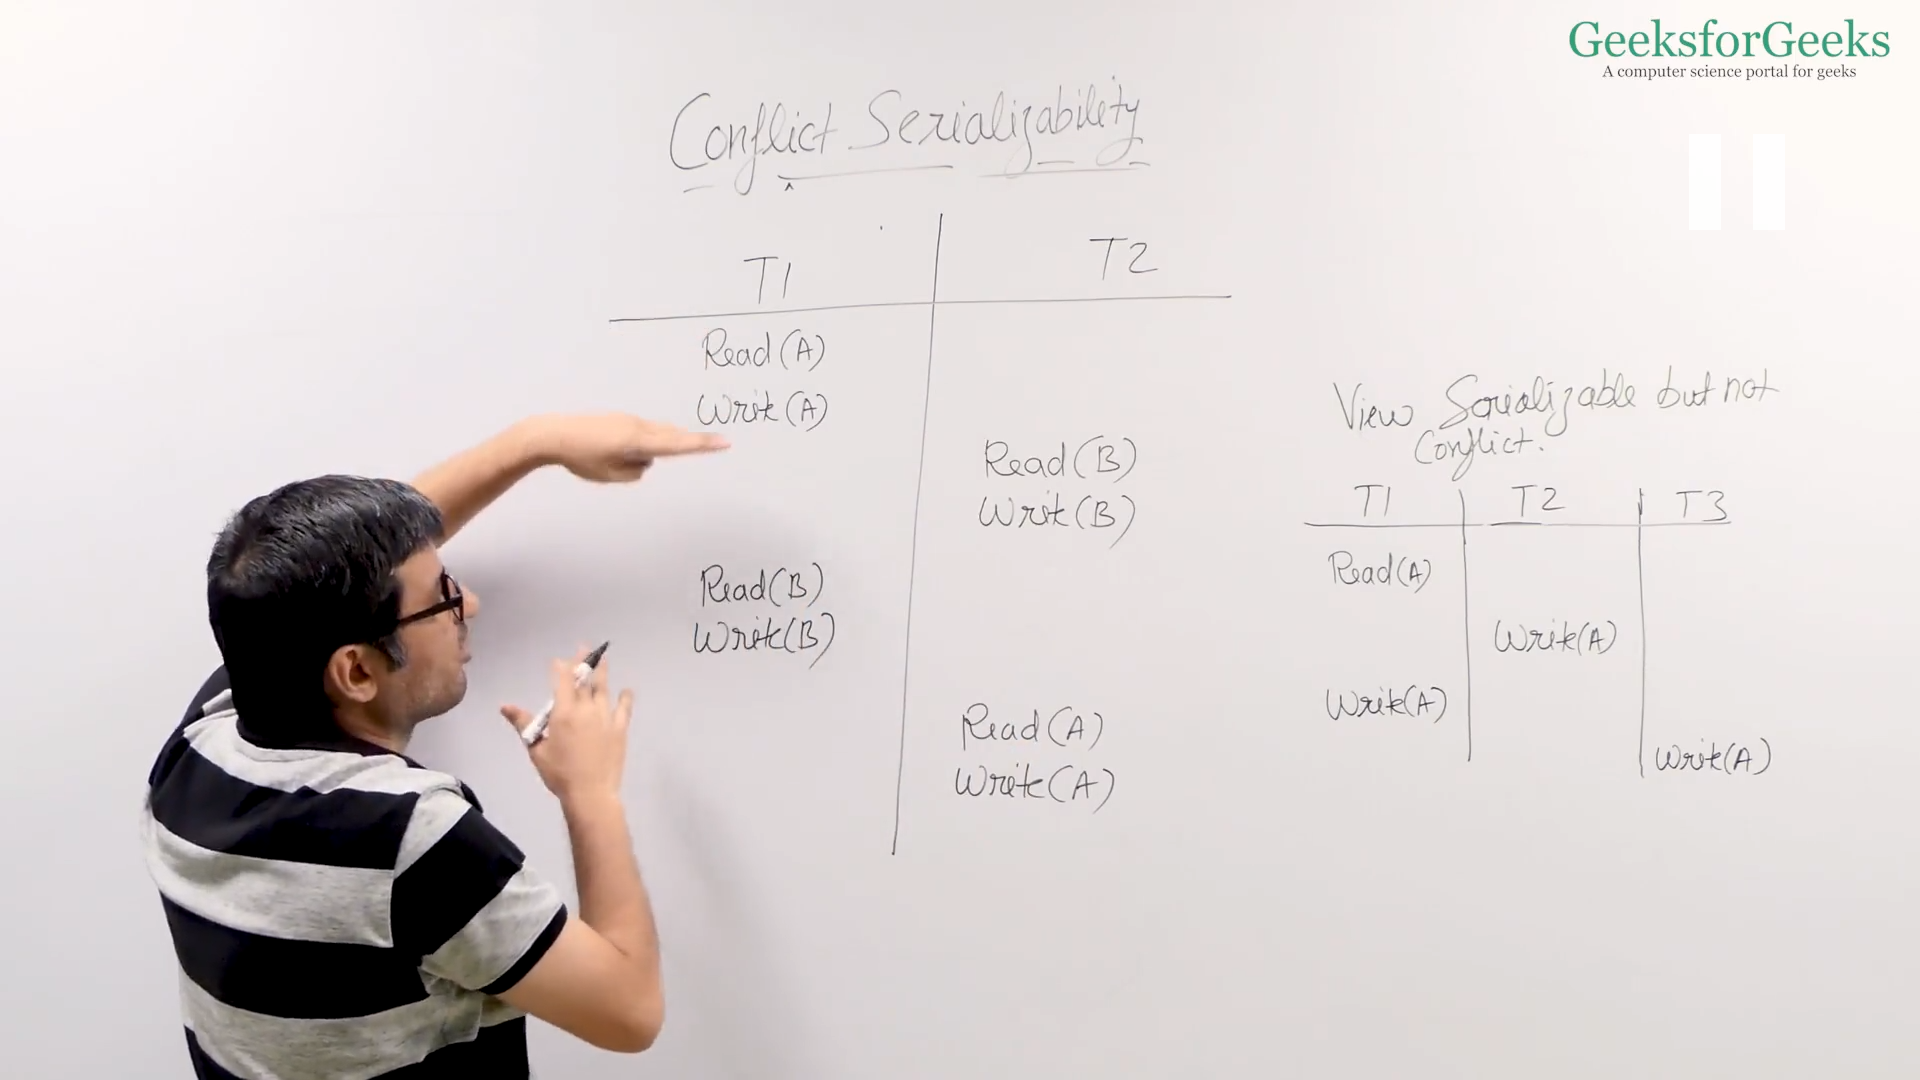 GeeksforGeeks
A computer science portal for geeks
Conflict Serializability
T1 T2
Read(A)
Write(A)
Read(B)
Write(B)
Read(B)
Write(B)
Read(A)
Write(A)
View Serializable but not
Conflict.
T1 T2 T3
Read(A)
Write(A)
Write(A)
Write(A)